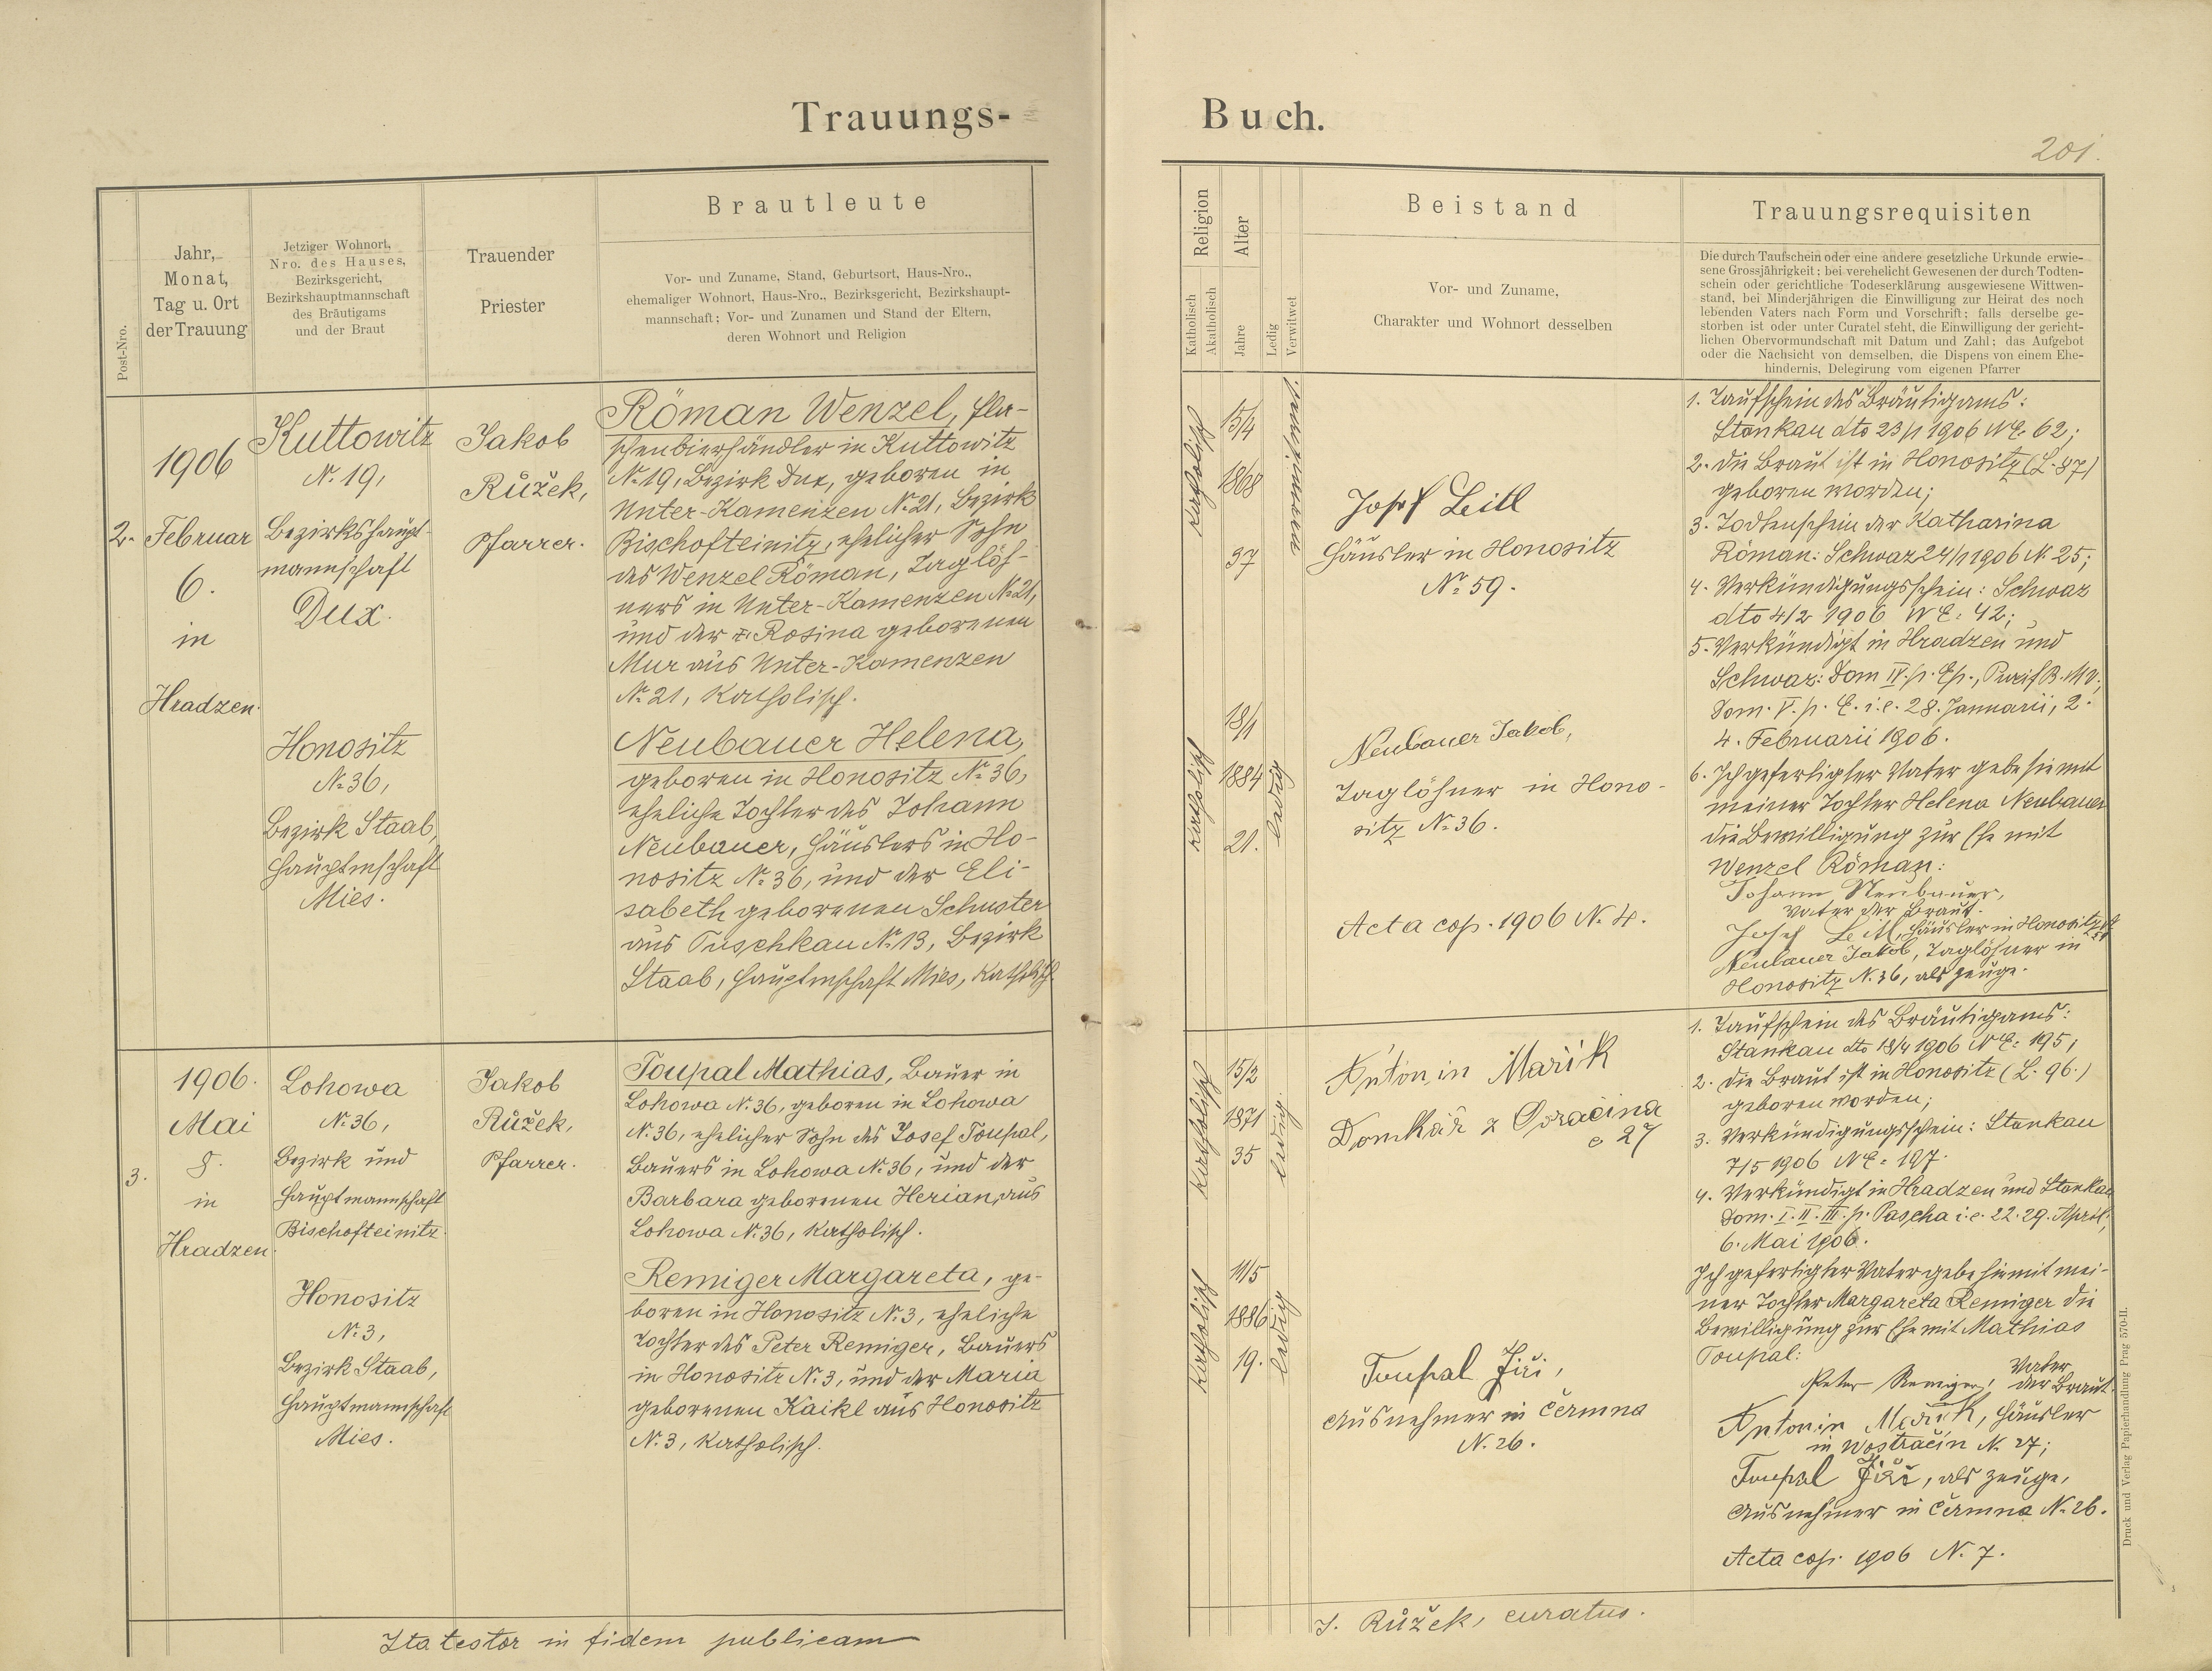 Trauungs-
Buch.
201.
Post-Nro.
Jahr,
Monat,
Tag u. Ort
der Trauung
Jetziger Wohnort,
Nro. des Hauses,
Bezirksgericht,
Bezirkshauptmannschaft
des Bräutigams
und der Braut
Trauender
Priester
Brautleute
Vor- und Zuname, Stand, Geburtsort, Haus-Nro.,
ehemaliger Wohnort, Haus-Nro., Bezirksgericht, Bezirkshaupt-
mannschaft; Vor- und Zunamen und Stand der Eltern,
deren Wohnort und Religion
Religion
Katholisch
Akatholisch
Alter
Jahre
Ledig
Verwitwet
Beistand
Vor- und Zuname,
Charakter und Wohnort desselben
Trauungsrequisiten
Die durch Taufschein oder eine andere gesetzliche Urkunde erwie-
sene Grossjährigkeit; bei verehelicht Gewesenen der durch Todten-
schein oder gerichtliche Todeserklärung ausgewiesene Wittwen-
stand, bei Minderjährigen die Einwilligung zur Heirat des noch
lebenden Vaters nach Form und Vorschrift; falls derselbe ge-
storben ist oder unter Curatel steht, die Einwilligung der gericht-
lichen Obervormundschaft mit Datum und Zahl; das Aufgebot
oder die Nachsicht von demselben, die Dispens von einem Ehe-
hindernis, Delegirung vom eigenen Pfarrer
2.
1906
Februar
6.
in
Hradzen.
Kuttowitz
N. 19,
Bezirkshaupt-
mannschaft
Dux.
Honositz
N. 36,
Bezirk Staab,
Hauptmschaft
Mies.
Jakob
Růžek,
Pfarrer.
Röman Wenzel, Fla-
schenbierhändler in Kuttowitz
N. 19, Bezirk Dux, geboren in
Unter-Kamenzen N. 21, Bezirk
Bischofteinitz, ehelicher Sohn
des Wenzel Röman, Taglöh-
ners in Unter-Kamenzen N. 21,
und der Rosina geborenen
Mur aus Unter-Kamenzen
N. 21, katholisch.
Neubauer Helena,
geboren in Honositz N. 36,
eheliche Tochter des Johann
Neubauer, Häuslers in Ho-
nositz N. 36, und der Eli-
sabeth geborenen Schuster
aus Tuschkau N. 13, Bezirk
Staab, Hauptmschaft Mies, katholisch.
katholisch
15/4
1868
37
verwitwet.
katholisch
18/1
1884
21.
ledig
Josef Leitl
Häusler in Honositz
No 59.
Neubauer Jakob,
Taglöhner in Hono-
sitz N. 36.
Acta cop. 1906 N. 4.
1. Taufschein des Bräutigams:
Stankau dto 23/1 1906 NE. 62;
2. die Braut ist in Honositz (L. 87)
geboren worden;
3. Todtenschein der Katharina
Röman: Schwaz 24/1 1906 N. 25;
4. Verkündigungsschein: Schwaz
dto 4/2 1906 NE. 42;
5. Verkündigt in Hradzen und
Schwaz: Dom IV. p. Ep., Purif B. M V.,
Dom. V. p. E. i. e. 28. Januarii, 2.
4. Februarii 1906.
6. Ich gefertigter Vater gebe hiemit
meiner Tochter Helena Neubauer
die Bewilligung zur Ehe mit
Wenzel Röman:
Johann Neubauer,
Vater der Braut.
Josef Leitl, Häusler in Honositz 59
Neubauer Jakob, Taglöhner in
Honositz N. 36, als Zeuge.
3.
1906.
Mai
8.
in
Hradzen.
Lohowa
N. 36,
Bezirk und
Hauptmannschaft
Bischofteinitz.
Honositz
N. 3,
Bezirk Staab,
Hauptmannschaft
Mies.
Jakob
Růžek,
Pfarrer.
Toupal Mathias, Bauer in
Lohowa N. 36, geboren in Lohowa
N. 36, ehelicher Sohn des Josef Toupal,
Bauers in Lohowa N. 36, und der
Barbara geborenen Herian, aus
Lohowa N. 36, katholisch.
Remiger Margareta, ge-
boren in Honositz N. 3, eheliche
Tochter des Peter Remiger, Bauers
in Honositz N. 3, und der Maria
geborenen Kaikl aus Honositz
N. 3, katholisch.
katholisch
15/2
1871
35
ledig.
katholisch
11/5
1886
19.
ledig
Antonin Mařik
Domkář z Osračina
c 27
Toupal Jiři,
Ausnehmer in Čermna
N. 26.
1. Taufschein des Bräutigams:
Stankau dto 18/4 1906 NE. 195;
2. die Braut ist in Honositz (L. 96.)
geboren worden;
3. Verkündigungsschein: Stankau
7/5 1906 NE. 197.
4. Verkündigt in Hradzen und Stankau
Dom. I. II. III. p. Pascha i. e. 22. 29. April,
6. Mai 1906.
Ich gefertigter Vater gebe hiemit mei-
ner Tochter Margareta Remiger die
Bewilligung zur Ehe mit Mathias
Toupal:
Peter Remiger, Vater
der Braut.
Antonin Mařik, Häusler
in Wostračin N. 27;
Toupal Jiři, als Zeuge,
Ausnehmer in Čermna N. 26.
Acta cop. 1906 N. 7.
Ita testor in fidem publicam
J. Růžek, curatus.
Druck und Verlag Papierhandlung Prag 570-II.